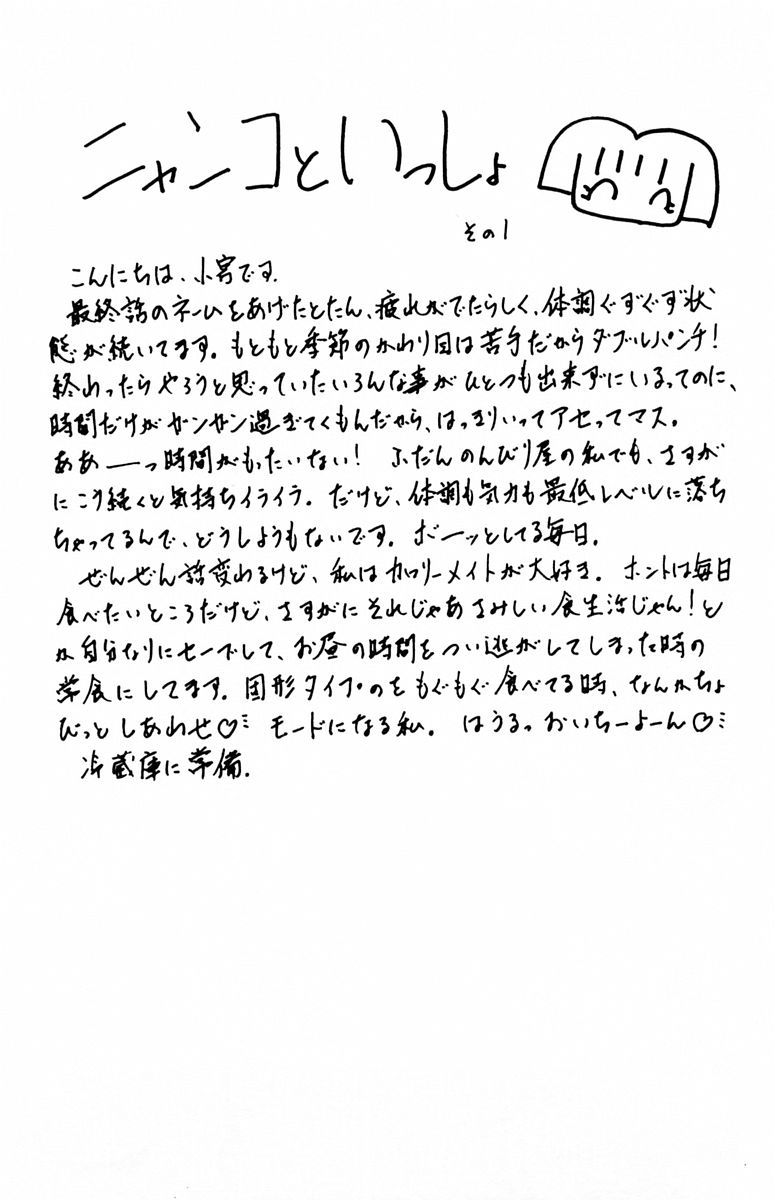 ニャンコといっしょ
その1
こんにちは、小宮です.
最終話のネームをあげたとたん、疲れがでたらしく、体調ぐずぐず状
態が続いてます。もともと季節のかわり目は苦手だからダブルパンチ!
終わったらやろうと思っていたいろんな事がひとつも出来ずにいるってのに、
時間だけがガンガン過ぎてくもんだから、はっきりいってアセってマス。
ああ――っ時間がもったいない! ふだんのんびり屋の私でも、さすが
にこう続くと気持ちイライラ。だけど、体調も気力も最低レベルに落ち
ちゃってるんで、どうしようもないです。ボーッとしてる毎日.
ぜんぜん話変わるけど、私はカロリーメイトが大好き。ホントは毎日
食べたいところだけど、さすがにそれじゃあさみしい食生活じゃん!と
か自分なりにセーブして、お昼の時間をつい逃がしてしまった時の
常食にしてます。固形タイプのをもぐもぐ食べてる時、なんかちょ
びっとしあわせ♡ モードになる私。 はうるっ おいちーよーん♡
冷蔵庫に常備.